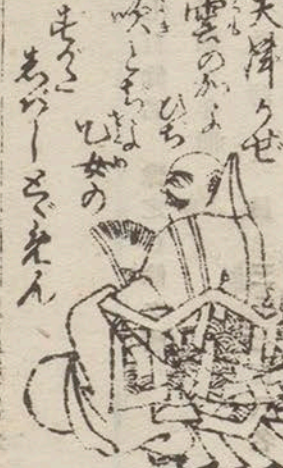 天津かぜ
雲のかよ
ひち
吹とぢよ
乙女の
すがた
しばしとゞめん